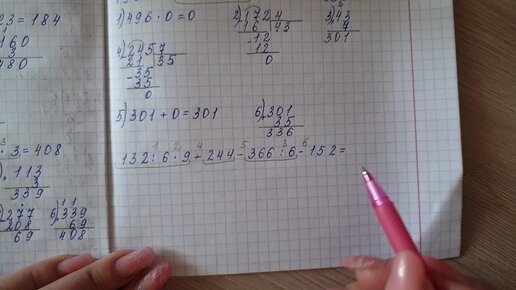 23 = 184
160
3
480
: 3 = 408
113
3
339
277
208
69
6) 339
69
408
1) 496 · 0 = 0
2) 172 4
16 43
-12
12
0
3) 43
7
301
4) 245 7
21 35
-35
35
0
5) 301 + 0 = 301
6) 301
35
336
132 : 6 · 9 + 244 - 366 : 6 - 152 =